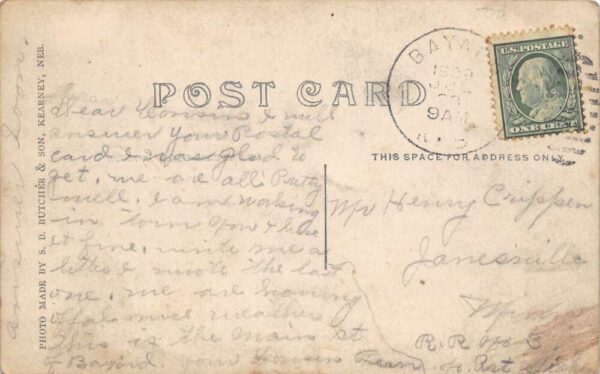 POST CARD
THIS SPACE FOR ADDRESS ONLY
PHOTO MADE BY S. D. BUTCHER & SON, KEARNEY, NEB.
answer soon.
BAYARD
1909
9AM
U.S. POSTAGE
ONE CENT
Dear Cousin I will
answer your Postal
card I was glad to
get. we are all Pretty
well. I am working
in town now & like
it fine. write me a
letter I wrote the last
one. we are having
nice weather
this is the Main st
of Bayard. your Cousin
Mr Henry Crippen
Janesville
Minn
R.R. No 3